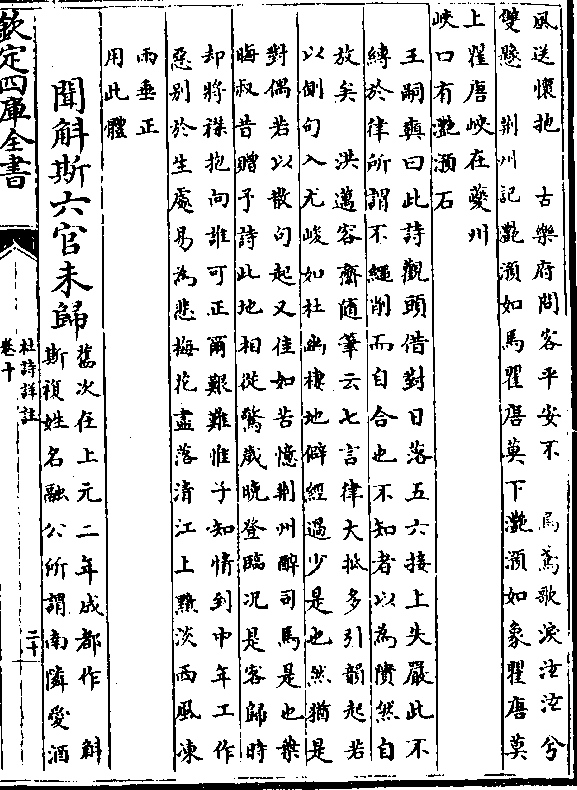 風送懷抱　古樂府問客平安不　馬鳶歌淚泣泣兮
雙懸　荆州記灧澦如馬瞿唐莫下灧澦如象瞿唐莫
上瞿唐峽在夔州
峽口有灧澦石
王嗣奭曰此詩觀頭借對日落五六接上失嚴此不
縛於律所謂不繩削而自合也不知者以為隤然自
放矣　洪邁容齋隨筆云七言律大抵多引韻起若
以側句入尤峻如杜幽棲地僻經過少是也然猶是
對偶若以散句起又佳如苦憶荆州醉司馬是也葉
晦叔昔贈予詩此地相從驚歲晚登臨况是客歸時
却將襟抱向誰可正爾艱難惟子知情到中年工作
惡别於生處易為悲梅花盡落清江上黯淡西風凍
雨垂正
用此體
聞斛斯六官未歸
舊次在上元二年成都作　斛
斯複姓名融公所謂南隣愛酒
欽定四庫全書
杜詩詳註
卷十
二十